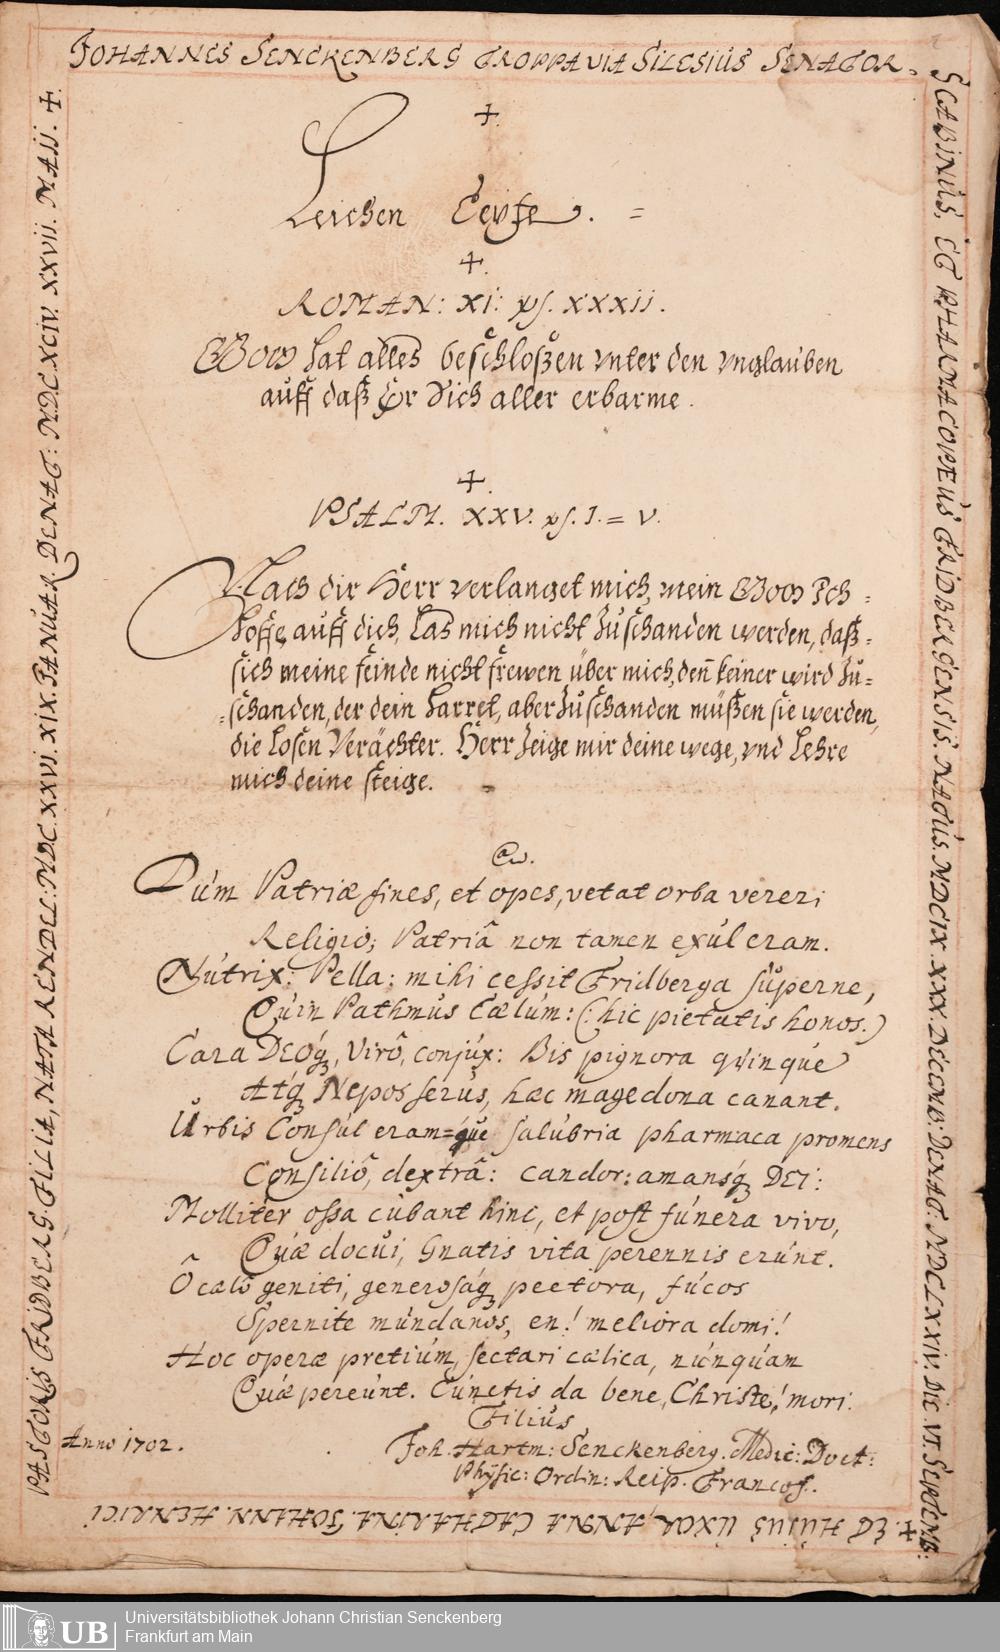 JOHANNES SENCKENBERG TROPPAVIA SILESIUS SENATOR.
SCABINUS, ET PHARMACOPŒUS FRIDBERGENSIS. NATUS. MDCIX. XXX. DECEMB: DENAT: MDCLXXIV. DIE VI. SEPTEMB:
+. ET HUIUS UXOR, ANNA CATHARINA. JOHANN. HENRICI
PASTORIS FRIDBERG. FILIA, NATA RENDEL. MDC.XXVI. XIX. JANUAR. DENAT: MDCXCIV. XXVII. MAII. +.
+.
Leichen Texte. =
+.
ROMAN: XI: ỿs. XXXII.
Gott hat alles beschloßen vnter den vnglauben
auff daß Er sich aller erbarme.
+.
PSALM. XXV. ỿs. I. = V.
Nach dir Herr verlanget mich, mein Gott Ich =
hoffe auff dich, Las mich nicht zuschanden werden, daß =
sich meine feinde nicht frewen über mich, deñ keiner wird zu =
= schanden, der dein harret, aber zuschanden müßen sie werden,
die losen Verächter. Herr zeige mir deine wege, vnd Lehre
mich deine steige.
Dum Patriæ fines, et opes, vetat orba vereri
Religio; Patriâ non tamen exul eram.
Nutrix: Pella: mihi cessit Fridberga superne,
Quin Pathmus Cælum: (: hic pietatis honos.)
Cara DEOq, Virô, conjux: Bis pignora quinque
Atq Nepos serus, hæc magedona canant.
Urbis Consul eram=que salubria pharmaca promens
Consiliô, dextrâ: candor: amansq DEI:
Molliter ossa cubant hinc, et post funera vivo,
Quæ docui, Gnatis vita perennis erunt.
Ô cælô geniti, generosaq pectora, fucos
Spernite mundanos, en! meliora domi!
Hoc operæ pretium, sectari cælica, nunquam
Quæ pereunt. Cunctis da bene, Christe! mori.
Filius
Anno 1702.
Joh. Hartm: Senckenberg. Medic: Doct:
Physic: Ordin: Reip. Francof.
UB
Universitätsbibliothek Johann Christian Senckenberg
Frankfurt am Main